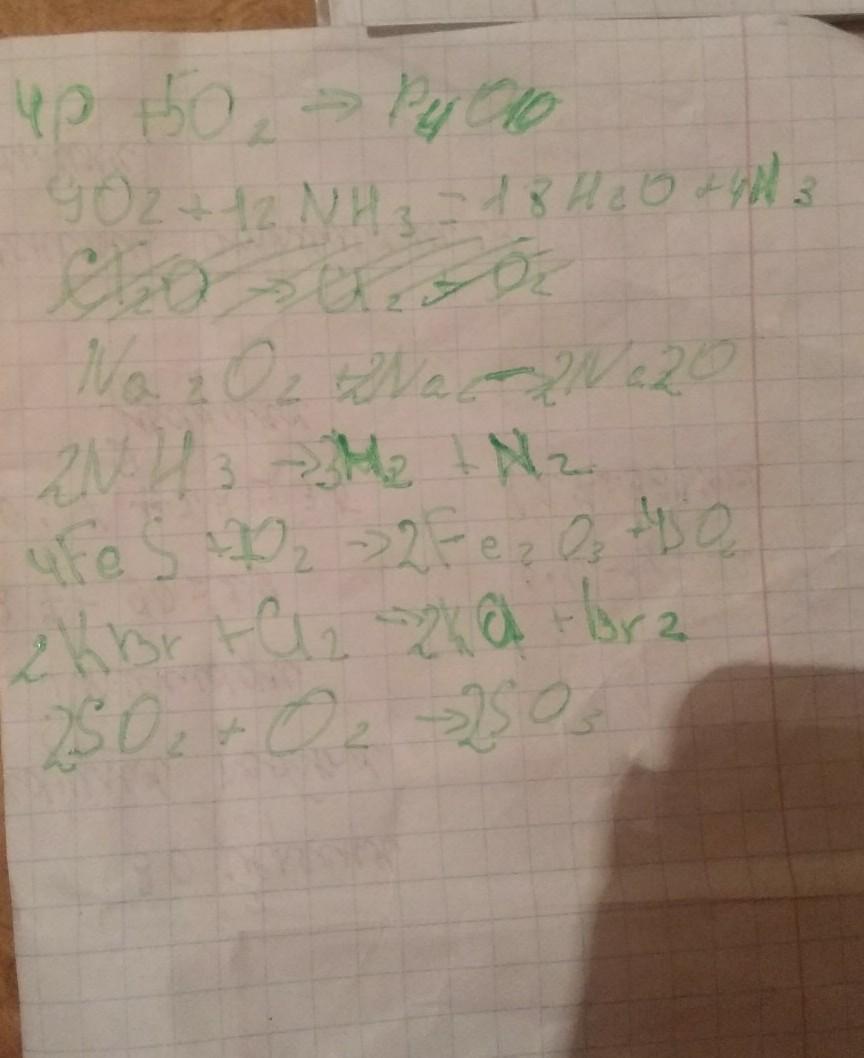 4P + 5O2 → P4O10
9O2 + 12NH3 = 18H2O + 4N3
Cl2O → Cl2 + O2
Na2O2 + 2Na → 2Na2O
2NH3 → 3H2 + N2
4FeS + 7O2 → 2Fe2O3 + 4SO2
2KBr + Cl2 → 2KCl + Br2
2SO2 + O2 → 2SO3